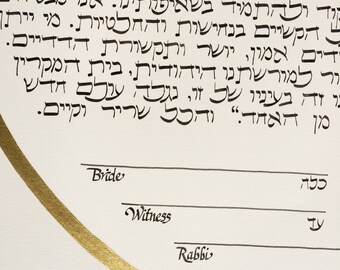 ולהתמיד בשאיפותינו. אנו
הקשיים בנחישות והחלטיות. מי ייתן
אמון, יושר ותקשורת הדדיים.
למורשתנו היהודית, בית המקרין
זה בעיניו של זו, נגלה עולם חדש
מן האחד." והכל שריר וקיים.
Bride כלה
Witness עד
Rabbi